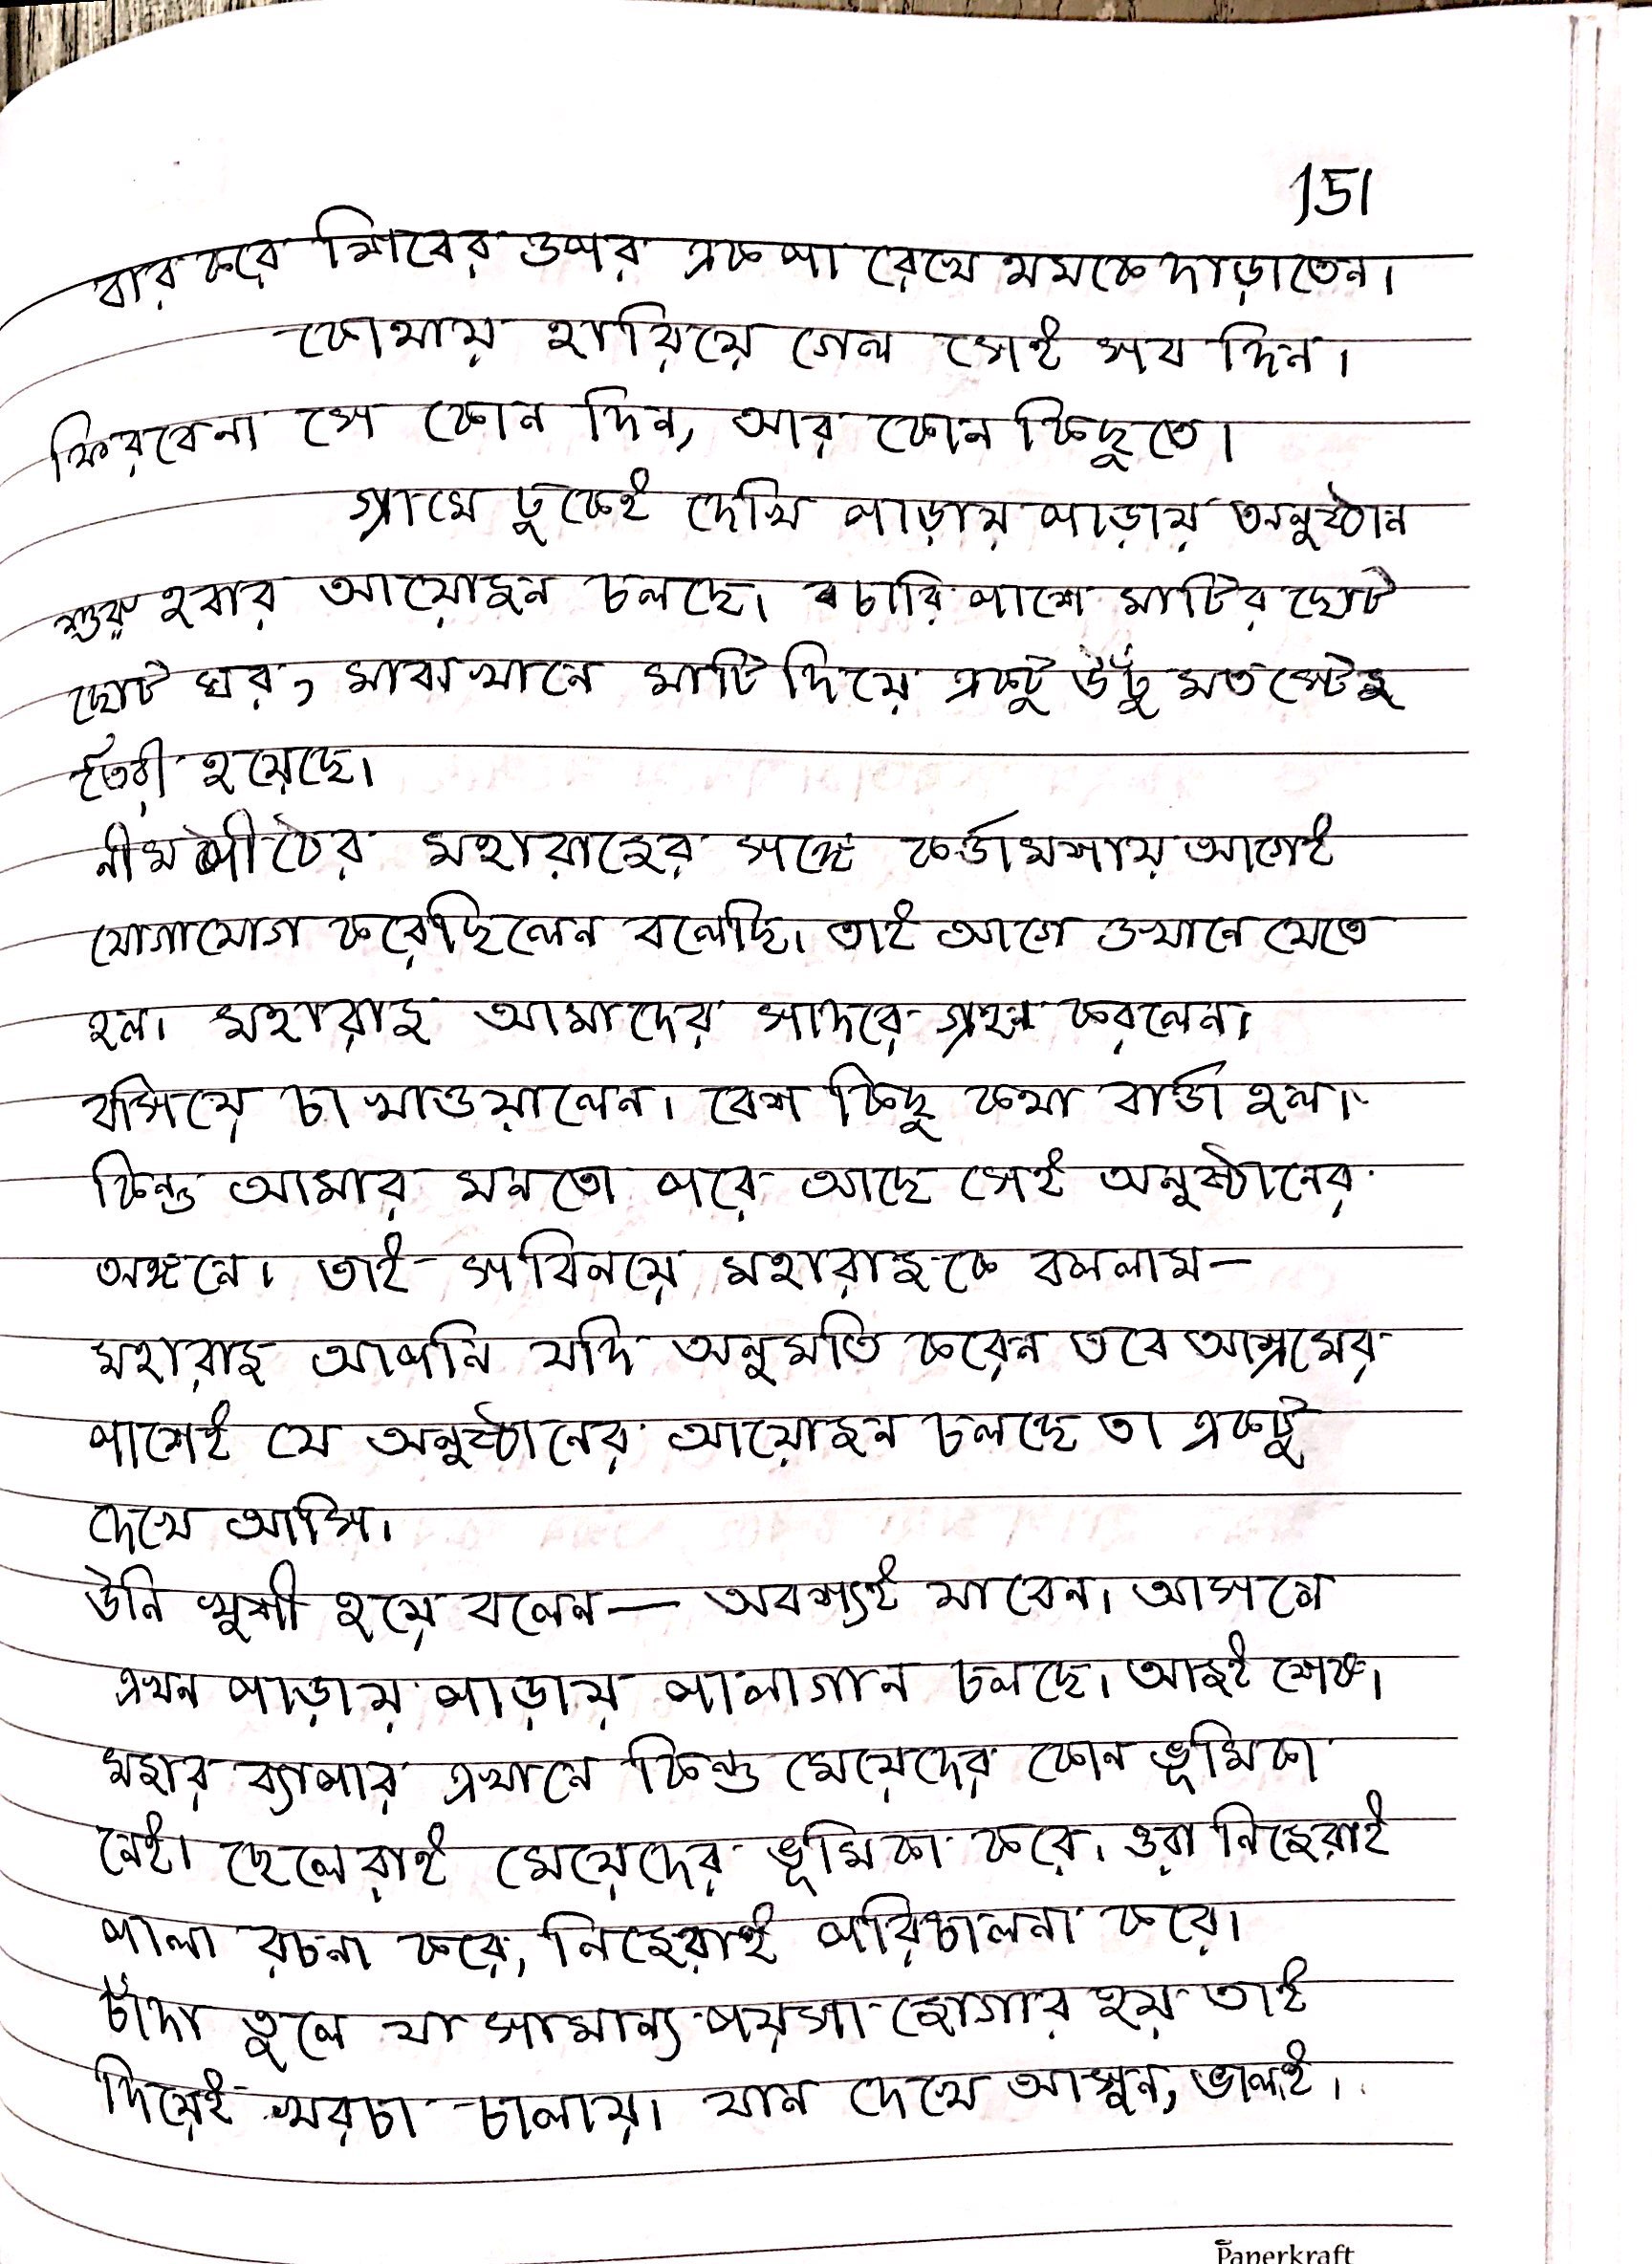 151
বার করে শিবের ওপর এক পা রেখে থমকে দাড়াতেন।
কোথায় হারিয়ে গেল সেই সব দিন।
ফিরবেনা সে কোন দিন, আর কোন কিছুতে।
গ্রামে ঢুকেই দেখি পাড়ায় পাড়ায় অনুষ্ঠান
শুরু হবার আয়োজন চলছে। চারি পাশে মাটির ছোট
ছোট ঘর, মাঝখানে মাটি দিয়ে একটু উঁচু মত স্টেজ
তৈরী হয়েছে।
নীমপীঠের মহারাজের সঙ্গে কর্তামশায় আগেই
যোগাযোগ করেছিলেন বলেছি। তাই আগে ওখানে যেতে
হল। মহারাজ আমাদের সাদরে গ্রহণ করলেন।
বসিয়ে চা খাওয়ালেন। বেশ কিছু কথা বার্তা হল।
কিন্তু আমার মনতো পরে আছে সেই অনুষ্ঠানের
অঙ্গনে। তাই সবিনয়ে মহারাজকে বললাম—
মহারাজ আপনি যদি অনুমতি করেন তবে আশ্রমের
পাশেই যে অনুষ্ঠানের আয়োজন চলছে তা একটু
দেখে আসি।
উনি খুশী হয়ে বলেন— অবশ্যই যাবেন। আসলে
এখন পাড়ায় পাড়ায় পালাগান চলছে। আজই শেষ।
মজার ব্যাপার এখানে কিন্তু মেয়েদের কোন ভূমিকা
নেই। ছেলেরাই মেয়েদের ভূমিকা করে। ওরা নিজেরাই
পালা রচনা করে, নিজেরাই পরিচালনা করে।
চাঁদা তুলে যা সামান্য পয়সা জোগার হয় তাই
দিয়েই খরচা চালায়। যান দেখে আসুন, ভালই।
Paperkraft